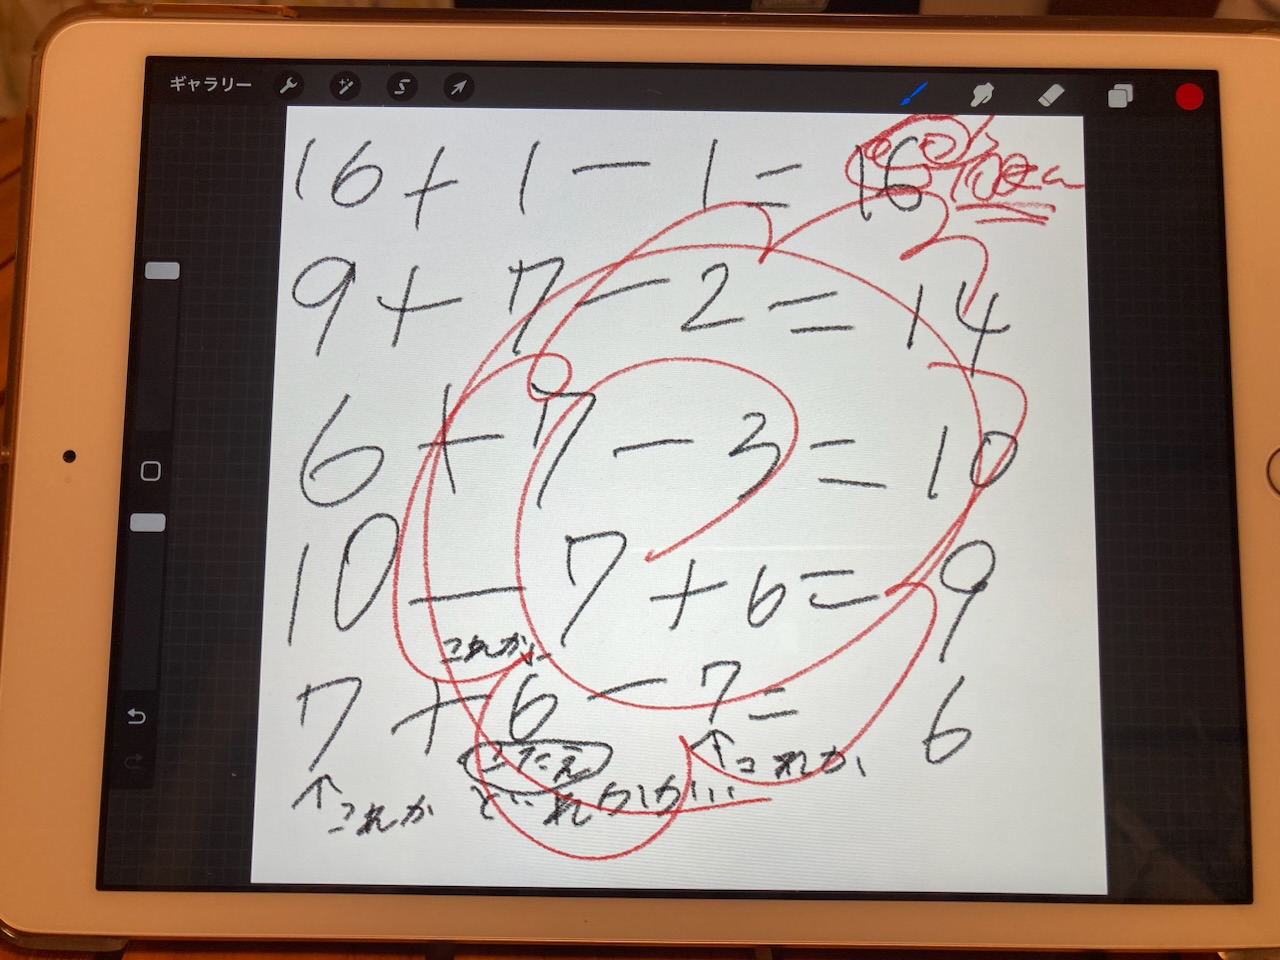 ギャラリー
16+1-1=16
100てん
9+7-2=14
6+7-3=10
10-7+6=9
これか
7+6-7=6
こたえ
↑これか
↑これか
どれかが…